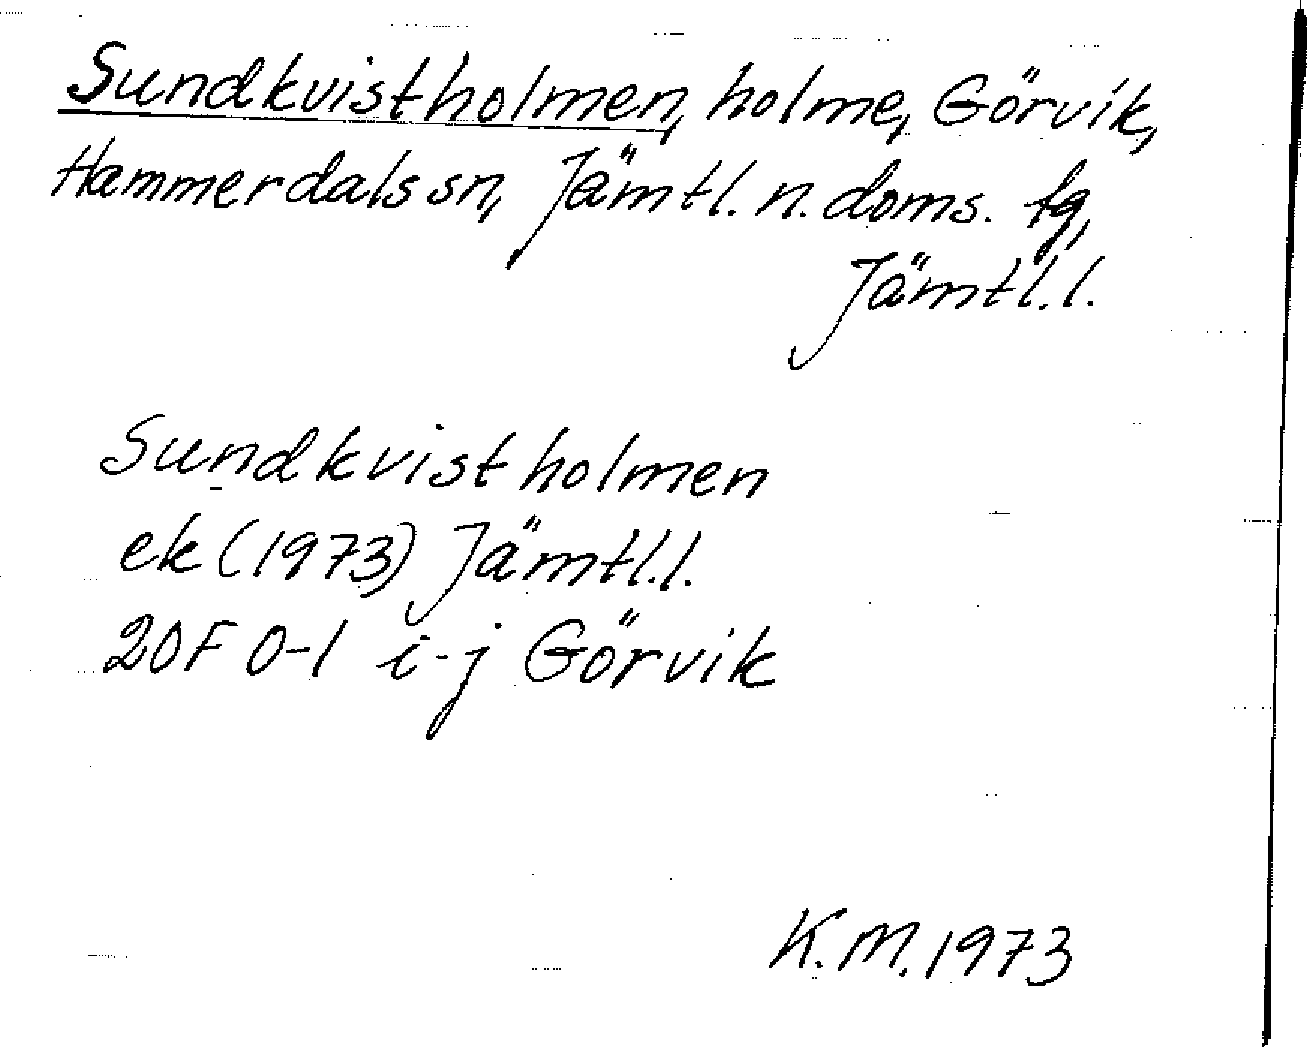 Sundkvistholmen, holme, Görvik,
Hammerdals sn, Jämtl. n. doms. tg,
Jämtl. l.
Sundkvistholmen
ek (1973) Jämtl. l.
20F 0-1 i-j Görvik
K.M. 1973